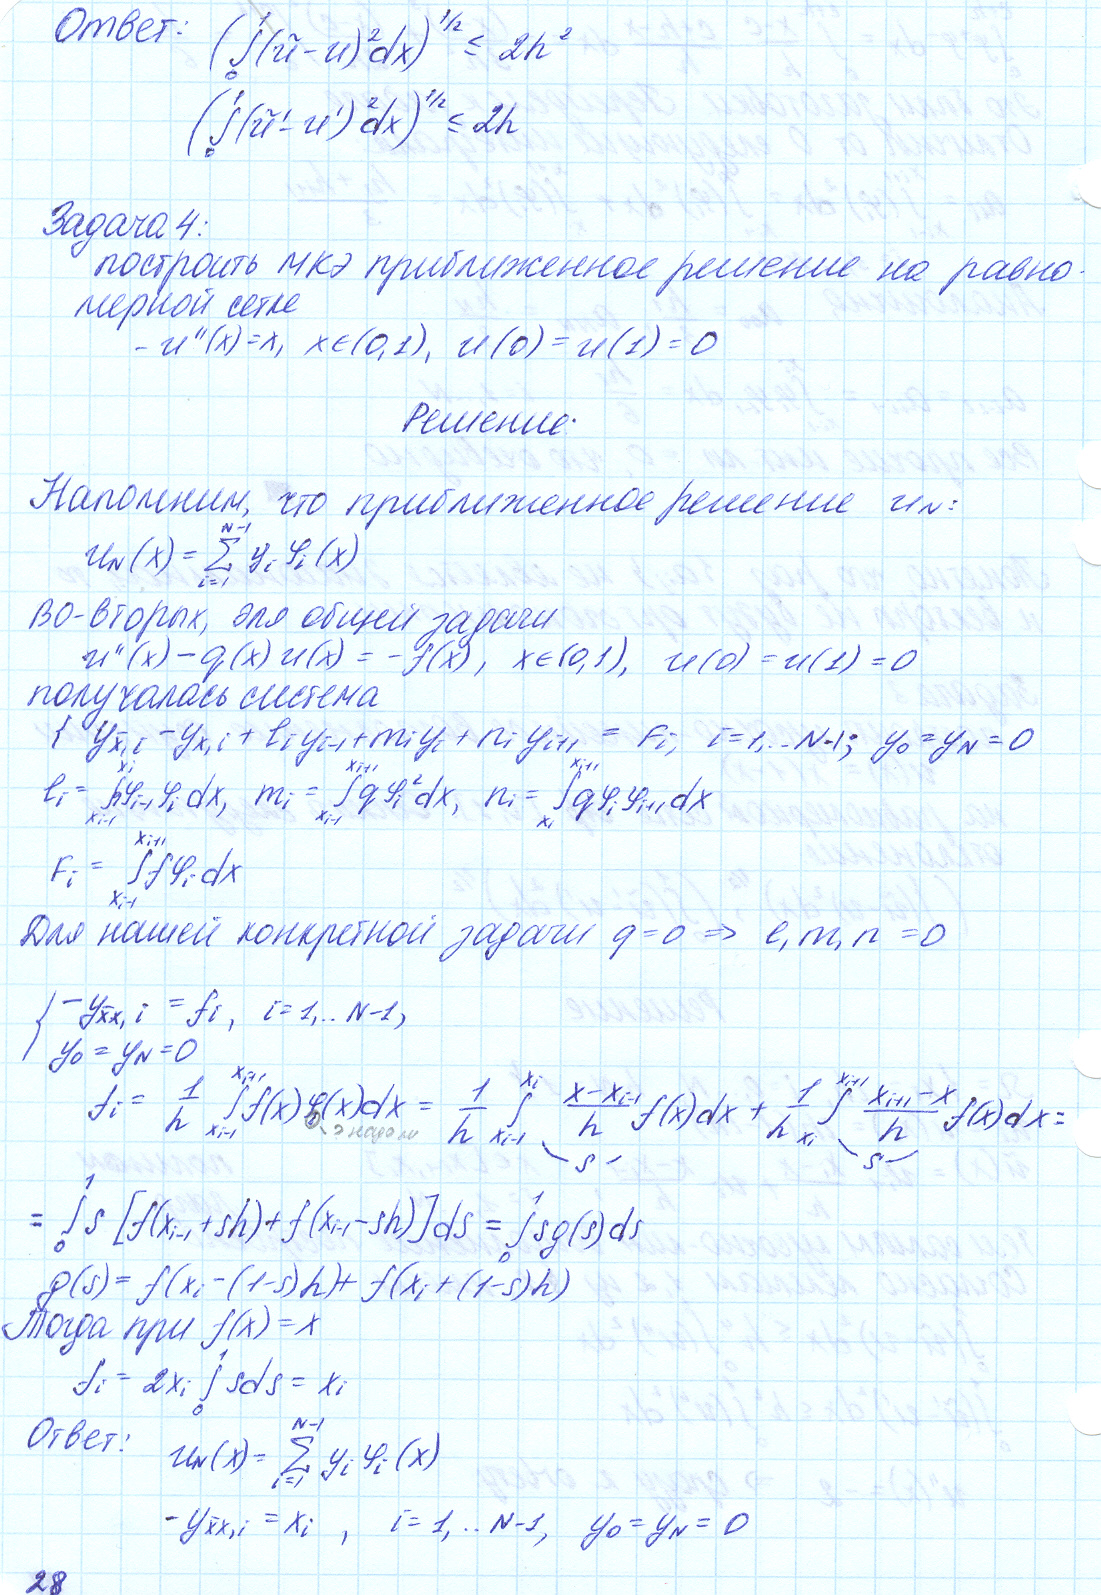 Ответ: (∫₀¹(ũ - u)²dx)^{1/2} ≤ 2h²
(∫₀¹(ũ' - u')²dx)^{1/2} ≤ 2h
Задача 4:
построить МКЭ приближенное решение на равно-
мерной сетке
-u''(x) = x, x∈(0,1), u(0) = u(1) = 0
Решение.
Напомним, что приближенное решение u_N:
u_N(x) = ∑_{i=1}^{N-1} y_i φ_i(x)
Во-вторых, для общей задачи
u''(x) - q(x)u(x) = -f(x), x∈(0,1), u(0) = u(1) = 0
получалась система
{ y_{x̄,i} - y_{x,i} + l_i y_{i-1} + m_i y_i + n_i y_{i+1} = F_i, i=1,..N-1; y_0 = y_N = 0
l_i = ∫_{x_{i-1}}^{x_i} φ_{i-1} φ_i dx, m_i = ∫_{x_{i-1}}^{x_{i+1}} qφ_i² dx, n_i = ∫_{x_i}^{x_{i+1}} qφ_i φ_{i+1} dx
F_i = ∫_{x_{i-1}}^{x_{i+1}} fφ_i dx
Для нашей конкретной задачи q=0 => l, m, n = 0
{ -y_{x̄x,i} = f_i, i=1,.. N-1,
y_0 = y_N = 0
f_i = 1/h ∫_{x_{i-1}}^{x_{i+1}} f(x) φ(x)dx = 1/h ∫_{x_{i-1}}^{x_i} (x-x_{i-1})/h f(x)dx + 1/h ∫_{x_i}^{x_{i+1}} (x_{i+1}-x)/h f(x)dx =
s s
= ∫₀¹ s [f(x_{i-1}+sh)+f(x_{i-1}-sh)]ds = ∫₀¹ sg(s)ds
g(s) = f(x_i-(1-s)h)+f(x_i+(1-s)h)
Тогда при f(x) = x
f_i = 2x_i ∫₀¹ sds = x_i
Ответ: u_N(x) = ∑_{i=1}^{N-1} y_i φ_i(x)
-y_{x̄x,i} = x_i, i=1,..N-1, y_0 = y_N = 0
28